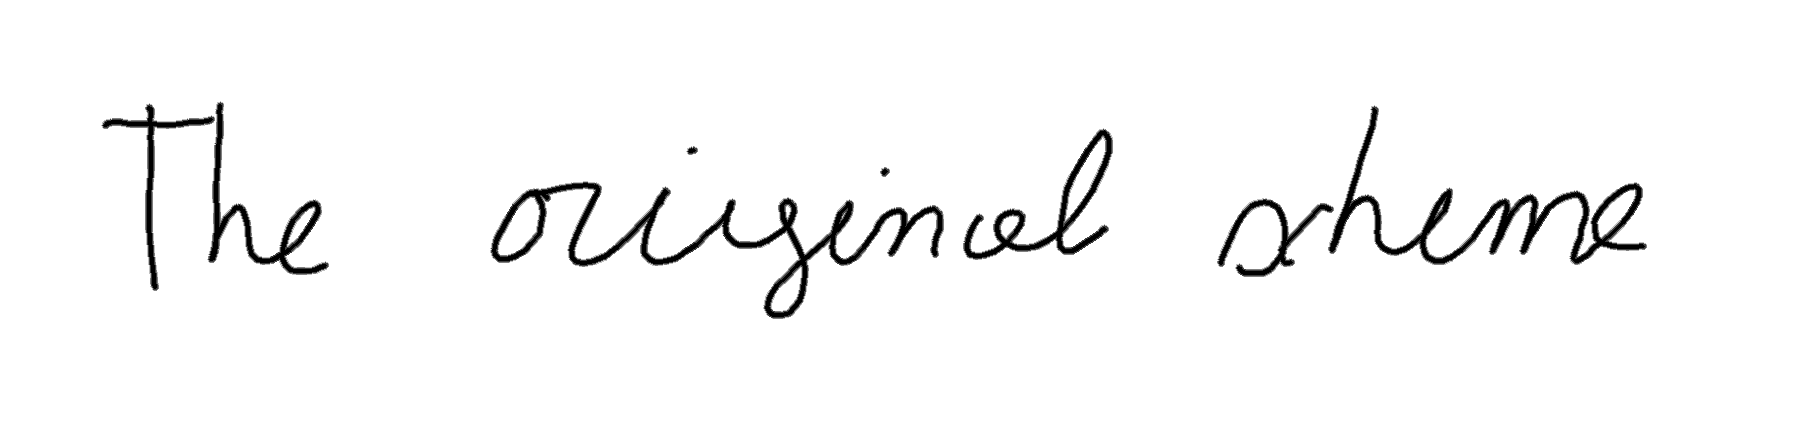 The original scheme